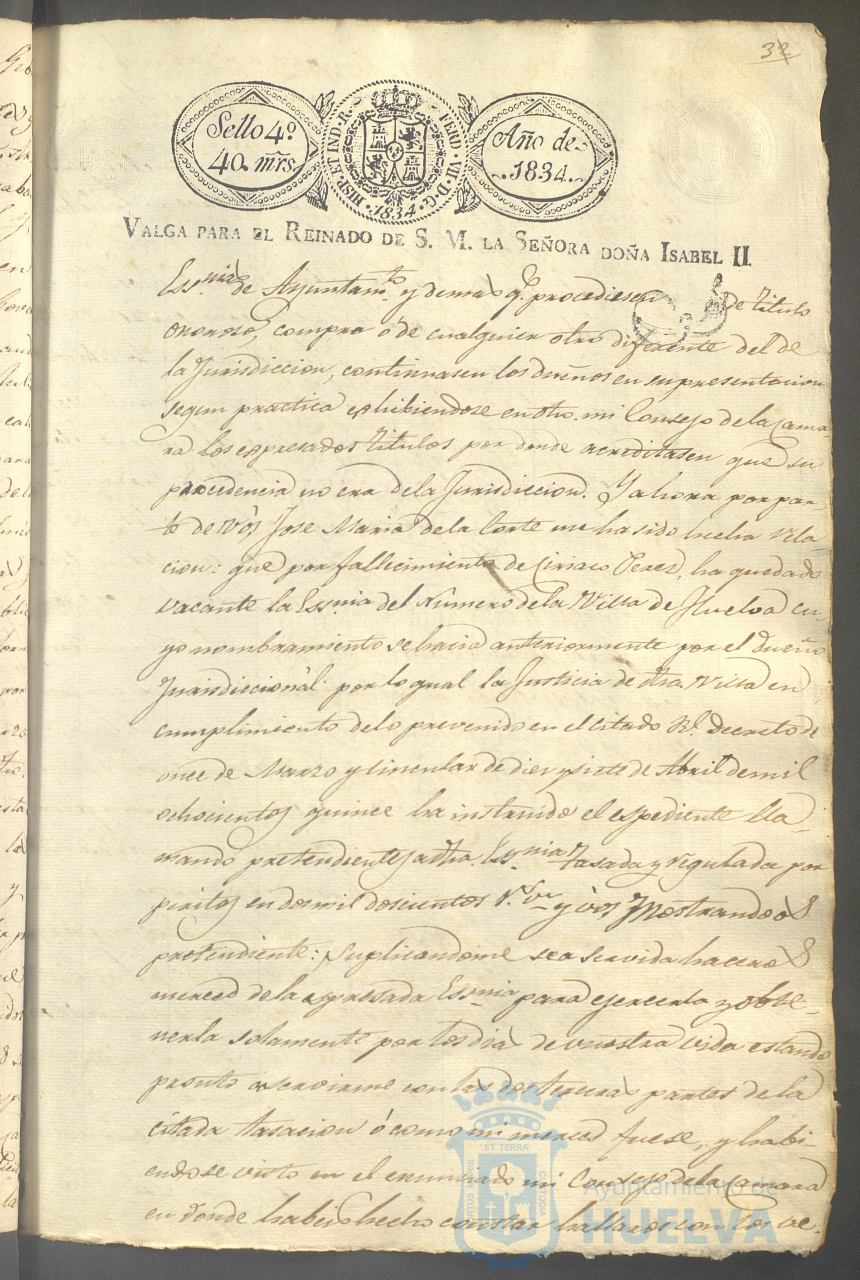 32
Sello 4º
40. mrs.
HISP. ET IND. R. FERD. VII. D. G.
.1834.
Año de
1834.
VALGA PARA EL REINADO DE S. M. LA SEÑORA DOÑA ISABEL II
Ess.nias de Ayuntam.to y demas q.e procediesen de titulo
oneroso, compra ó de cualquier otro diferente del de
la Jurisdiccion, continuasen los dueños en su presentacion
segun practica exhibiendose en dho. mi Consejo de la Cama
ra los expresados titulos por donde acreditasen que su
procedencia no era de la Jurisdiccion. Y ahora por par-
te de vós José Maria de la Corte me ha sido hecha rela-
cion: que por fallecimiento de Ciriaco Perez, ha quedado
vacante la Ess.nia del Número de la Villa de Huelva cu-
yo nombramiento se hacia anteriormente por el dueño
Jurisdiccional: por lo qual la Justicia de dha. Villa en
cumplimiento de lo prevenido en el citado R.l Decreto de
once de Marzo y circular de diez y siete de Abril de mil
ochocientos quince ha instruido el espediente lla-
mando pretendientes a dha. Ess.nia tasada y regulada por
peritos en dos mil doscientos r.s v.n y vós mostrandoos
pretendiente: suplicandome sea servida haceros
merced de la espresada Ess.nia para ejercerla y obte-
nerla solamente por los dias de vuestra vida estando
pronto a servirme con las dos terceras partes de la
citada tasacion ó como mi merced fuese, y habi-
endose visto en el enunciado mi Consejo de la Camara
en donde habeis hecho constar hallaros con los re-
ET TERRÆ
CUSTODIA
Ayuntamiento de
HUELVA